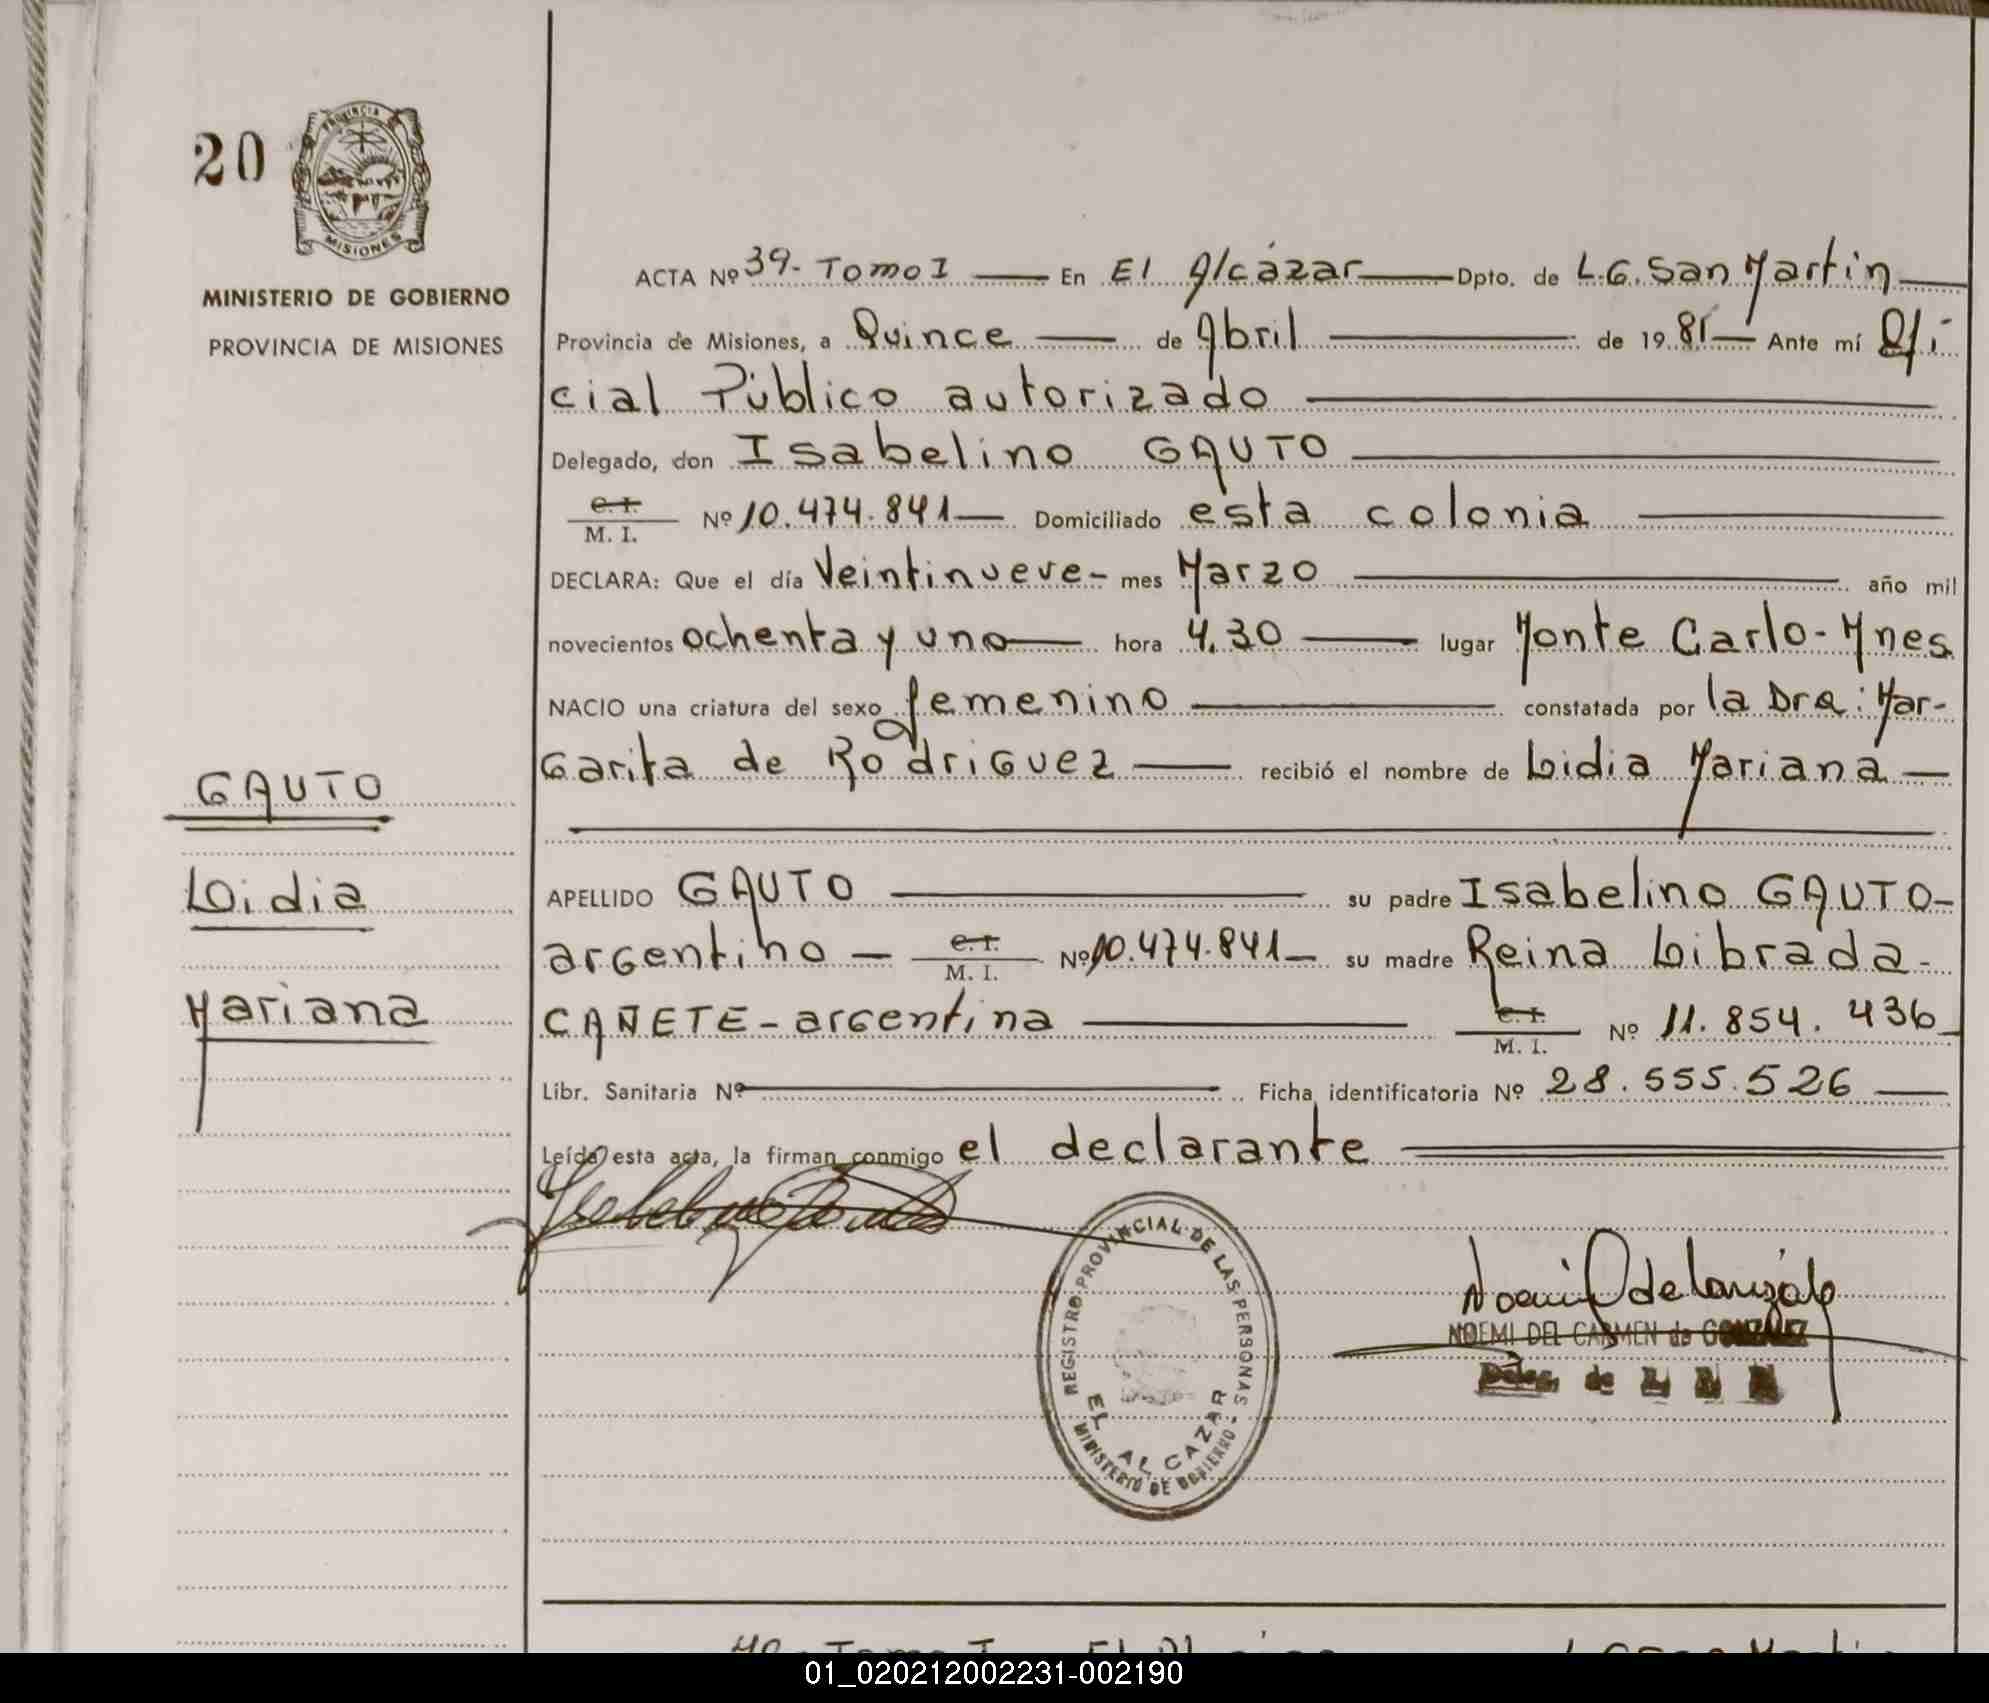 20
PROVINCIA
MISIONES
MINISTERIO DE GOBIERNO
PROVINCIA DE MISIONES
ACTA Nº 39- Tomo I — En El Alcázar — Dpto. de L.G. San Martin —
Provincia de Misiones, a Quince — de Abril — de 1981 — Ante mí Ofi
cial Público autorizado —
Delegado, don Isabelino GAUTO —
C. I.
M. I. Nº 10.474.841 — Domiciliado esta colonia —
DECLARA: Que el día Veintinueve- mes Marzo — año mil
novecientos ochenta y uno — hora 4.30 — lugar Monte Carlo- Mnes
NACIO una criatura del sexo femenino — constatada por la Dra: Mar-
garita de Rodriguez — recibió el nombre de Lidia Mariana —
GAUTO
Lidia
Mariana
APELLIDO GAUTO — su padre Isabelino GAUTO-
argentino — C. I.
M. I. Nº 10.474.841 — su madre Reina Librada-
CAÑETE - argentina — C. I.
M. I. Nº 11.854.436
Libr. Sanitaria Nº — Ficha identificatoria Nº 28.555.526 —
Leída esta acta, la firman conmigo el declarante
REGISTRO PROVINCIAL DE LAS PERSONAS
EL ALCAZAR
MINISTERIO DE GOBIERNO
NOEMI DEL CARMEN de GONZALEZ
Deleg. de
40- Tomo I
01_020212002231-002190